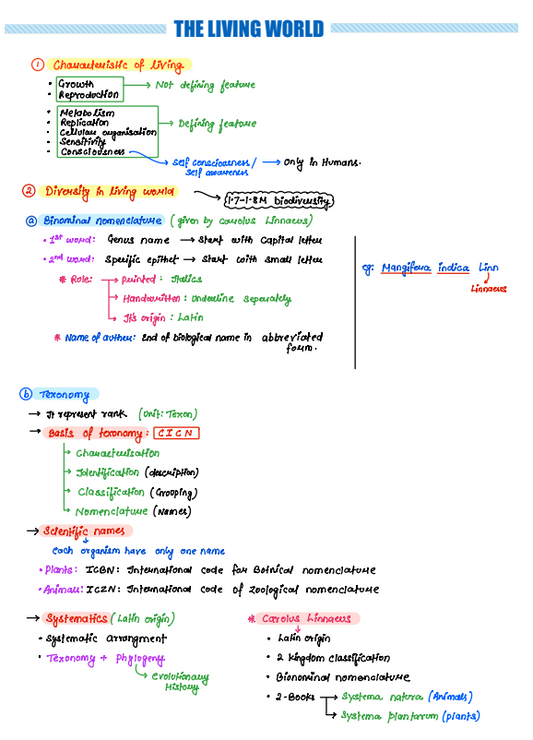 THE LIVING WORLD
① Characteristic of living
• Growth
• Reproduction
→ Not defining feature
• Metabolism
• Replication
• Cellular organisation
• Sensitivity
• Consciousness
→ Defining feature
→ Self consciousness/
Self awareness
→ Only in Humans.
② Diversity in living world
→ 1.7-1.8M biodiversity
ⓐ Binominal nomenclature (given by carolus Linnaeus)
• 1st word: Genus name → Start with Capital letter
• 2nd word: Specific epithet → Start with small letter
* Role: → printed : Italics
→ Handwritten : underline separately
→ It's origin : Latin
* Name of author: End of biological name in abbreviated
form.
eg: Mangifera indica Linn
Linnaeus
ⓑ Texonomy
→ It represent rank (unit: Texon)
→ Basis of texonomy : CICN
→ Characterisation
→ Identification (description)
→ Classification (Grouping)
→ Nomenclature (Names)
→ Scientific names
each organism have only one name
• Plants: ICBN: International code for Botnical nomenclature
• Animals: ICZN: International code of Zoological nomenclature
→ Systematics (Latin origin)
• Systematic arrangment
• Texonomy + Phylogeny
→ Evolutionary
History
* Carolus Linnaeus
• Latin origin
• 2 kingdom classification
• Bionominal nomenclature
• 2-Books → Systema natura (Animals)
→ Systema plantarum (plants)